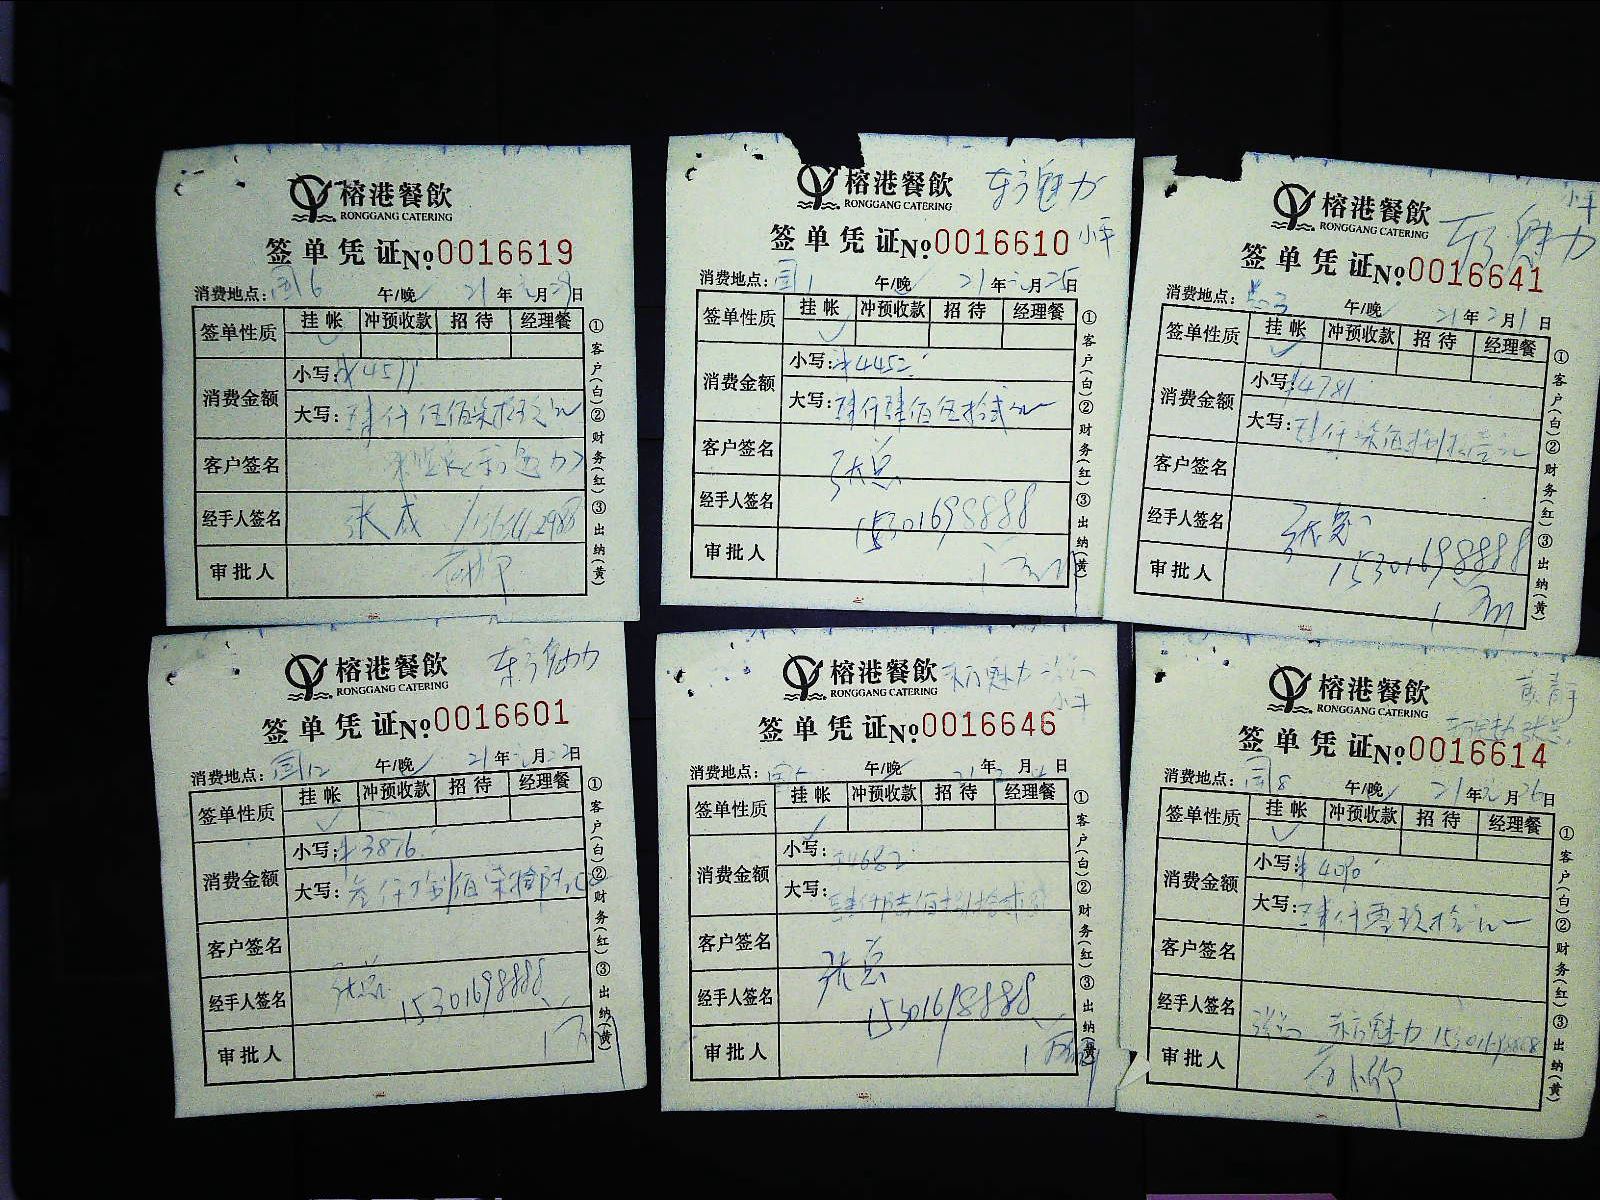 榕港餐飲
RONGGANG CATERING
签单凭证№0016619
消费地点: 国6 午/晚 21年元月29日
签单性质 挂帐 冲预收款 招待 经理餐
消费金额 小写:
大写: 肆仟伍佰柒拾玖元
客户签名
经手人签名 张成
审批人
①客户(白)②财务(红)③出纳(黄)
榕港餐飲 东方魅力
RONGGANG CATERING
签单凭证№0016610 小平
消费地点: 国1 午/晚 21年元月25日
签单性质 挂帐 冲预收款 招待 经理餐
消费金额 小写: ¥4452
大写: 肆仟肆佰伍拾贰元
客户签名 张总
经手人签名 15301698888
审批人
①客户(白)②财务(红)③出纳(黄)
小平
榕港餐飲 东方魅力
RONGGANG CATERING
签单凭证№0016641
消费地点: 午/晚 21年2月1日
签单性质 挂帐 冲预收款 招待 经理餐
消费金额 小写: ¥4781
大写: 肆仟柒佰捌拾壹元
客户签名
经手人签名 张总 15301698888
审批人
①客户(白)②财务(红)③出纳(黄)
榕港餐飲 东方魅力
RONGGANG CATERING
签单凭证№0016601
消费地点: 国12 午/晚 21年元月22日
签单性质 挂帐 冲预收款 招待 经理餐
消费金额 小写: ¥3876
大写: 叁仟捌佰柒拾陆元
客户签名
经手人签名 张总 15301698888
审批人
①客户(白)②财务(红)③出纳(黄)
榕港餐飲 东方魅力
RONGGANG CATERING 小平
签单凭证№0016646
消费地点: 午/晚 21年 月 日
签单性质 挂帐 冲预收款 招待 经理餐
消费金额 小写: ¥4682
大写: 肆仟陆佰捌拾贰元
客户签名 张总
经手人签名 15301698888
审批人
①客户(白)②财务(红)③出纳(黄)
榕港餐飲
RONGGANG CATERING 东方魅力张总
签单凭证№0016614
消费地点: 国8 午/晚 21年元月26日
签单性质 挂帐 冲预收款 招待 经理餐
消费金额 小写: ¥4090
大写: 肆仟零玖拾元
客户签名
经手人签名 张总 东方魅力 15301698888
审批人
①客户(白)②财务(红)③出纳(黄)